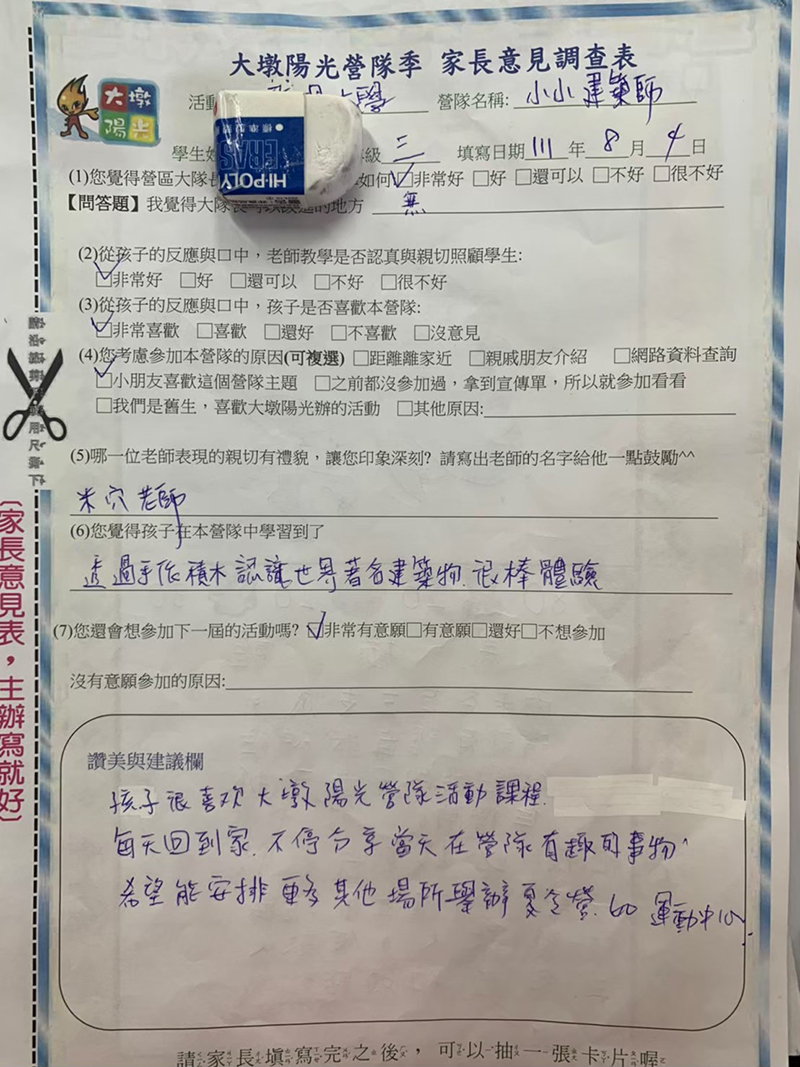 大墩陽光營隊季 家長意見調查表
大墩
陽光
活動 學 營隊名稱: 小小建築師
學生姓 級 三 填寫日期 111 年 8 月 4 日
HI-POLY
ERAS
標準型
(1)您覺得營區大隊長 如何 ☑非常好 □好 □還可以 □不好 □很不好
【問答題】我覺得大隊長可以改進的地方 無
(2)從孩子的反應與口中，老師教學是否認真與親切照顧學生:
☑非常好 □好 □還可以 □不好 □很不好
(3)從孩子的反應與口中，孩子是否喜歡本營隊:
☑非常喜歡 □喜歡 □還好 □不喜歡 □沒意見
(4)您考慮參加本營隊的原因(可複選) □距離離家近 □親戚朋友介紹 □網路資料查詢
☑小朋友喜歡這個營隊主題 □之前都沒參加過，拿到宣傳單，所以就參加看看
□我們是舊生，喜歡大墩陽光辦的活動 □其他原因:
(5)哪一位老師表現的親切有禮貌，讓您印象深刻? 請寫出老師的名字給他一點鼓勵^^
米穴老師
(6)您覺得孩子在本營隊中學習到了
透過手作積木認識世界著名建築物.很棒體驗
(7)您還會想參加下一屆的活動嗎? ☑非常有意願□有意願□還好□不想參加
沒有意願參加的原因:
讚美與建議欄
孩子很喜欢大墩陽光營隊活動課程.
每天回到家.不停分享當天在營隊有趣的事物^
希望能安排更多其他場所舉辦夏令營.如運動中心
請家長填寫完之後，可以抽一張卡片喔
〔家長意見表，主辦寫就好〕